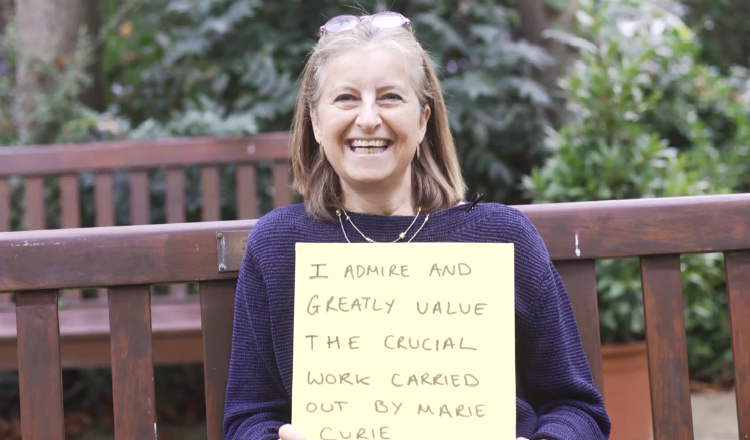 I ADMIRE AND
GREATLY VALUE
THE CRUCIAL
WORK CARRIED
OUT BY MARIE
CURIE